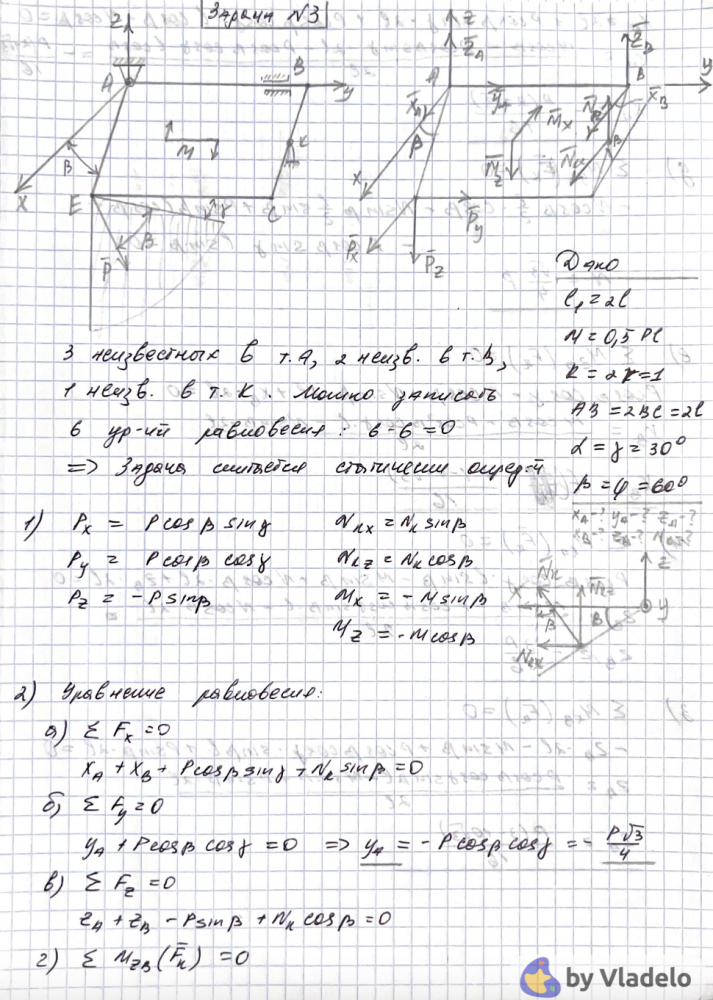 Задача №3
z
A
B
y
K
M
β
x
E
C
γ
β
P̄
z
Z̄_A
Z̄_B
A
B
y
X̄_A
Ȳ_A
M̄_x
X̄_B
β
M̄_z
N̄_к
x
P̄_y
P̄_x
P̄_z
Дано
l₁ = 2l
M = 0,5 Pl
AB = 2BC = 2l
α = γ = 30°
β = φ = 60°
x_A-? y_A-? z_A-?
3 неизвестных в т. A, 2 неизв. в т. B,
1 неизв. в т. K. Можно записать
6 ур-ий равновесия: 6-6=0
=> Задача считается статически опред-й
1) P_x = P cosβ sinγ N_кx = N_к sinβ
P_y = P cosβ cosγ N_кz = N_к cosβ
P_z = -P sinβ M_x = -M sinβ
M_z = -M cosβ
z
x
N̄_к
β
β
y
N̄_кx
2) Уравнение равновесия:
а) Σ F_x = 0
x_A + x_B + P cosβ sinγ + N_к sinβ = 0
б) Σ F_y = 0
y_A + P cosβ cosγ = 0 => y_A = -P cosβ cosγ = - P√3/4
в) Σ F_z = 0
z_A + z_B - P sinβ + N_к cosβ = 0
г) Σ M_zB (F̄_к) = 0
by Vladelo